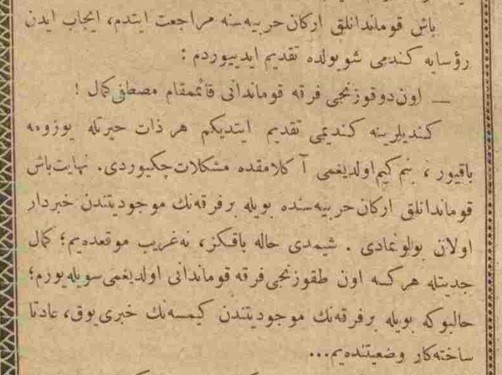 باش قوماندانلق اركان حربيه‌سنه مراجعت ايتدم، ايجاب ايدن
رؤسايه كندمى شويولده تقديم ايدييوردم :
— اون‌دوقوزنجى فرقه قوماندانى قائممقام مصطفى كمال !
كنديلرينه كنديمى تقديم ايتديكم هر ذات حيرتله يوزومه
باقيور ، بنم كيم‌اولديغمى آكلامقده مشكلات‌چكيوردى. نهايت‌باش
قوماندانلق اركان‌حربيه‌سنده بويله برفرقه‌نك موجوديتندن خبردار
اولان بولونمادى . شيمدى حاله باقكز، نه‌غريب موقعده‌يم؛ كمال
جديتله هركسه اون طقوزنجى‌فرقه قوماندانى اولديغمى‌سويله‌يورم؛
حالبوكه بويله برفرقه‌نك موجوديتندن كيمسه‌نك خبرى‌يوق، عادتا
ساخته‌كار وضعيتنده‌يم...